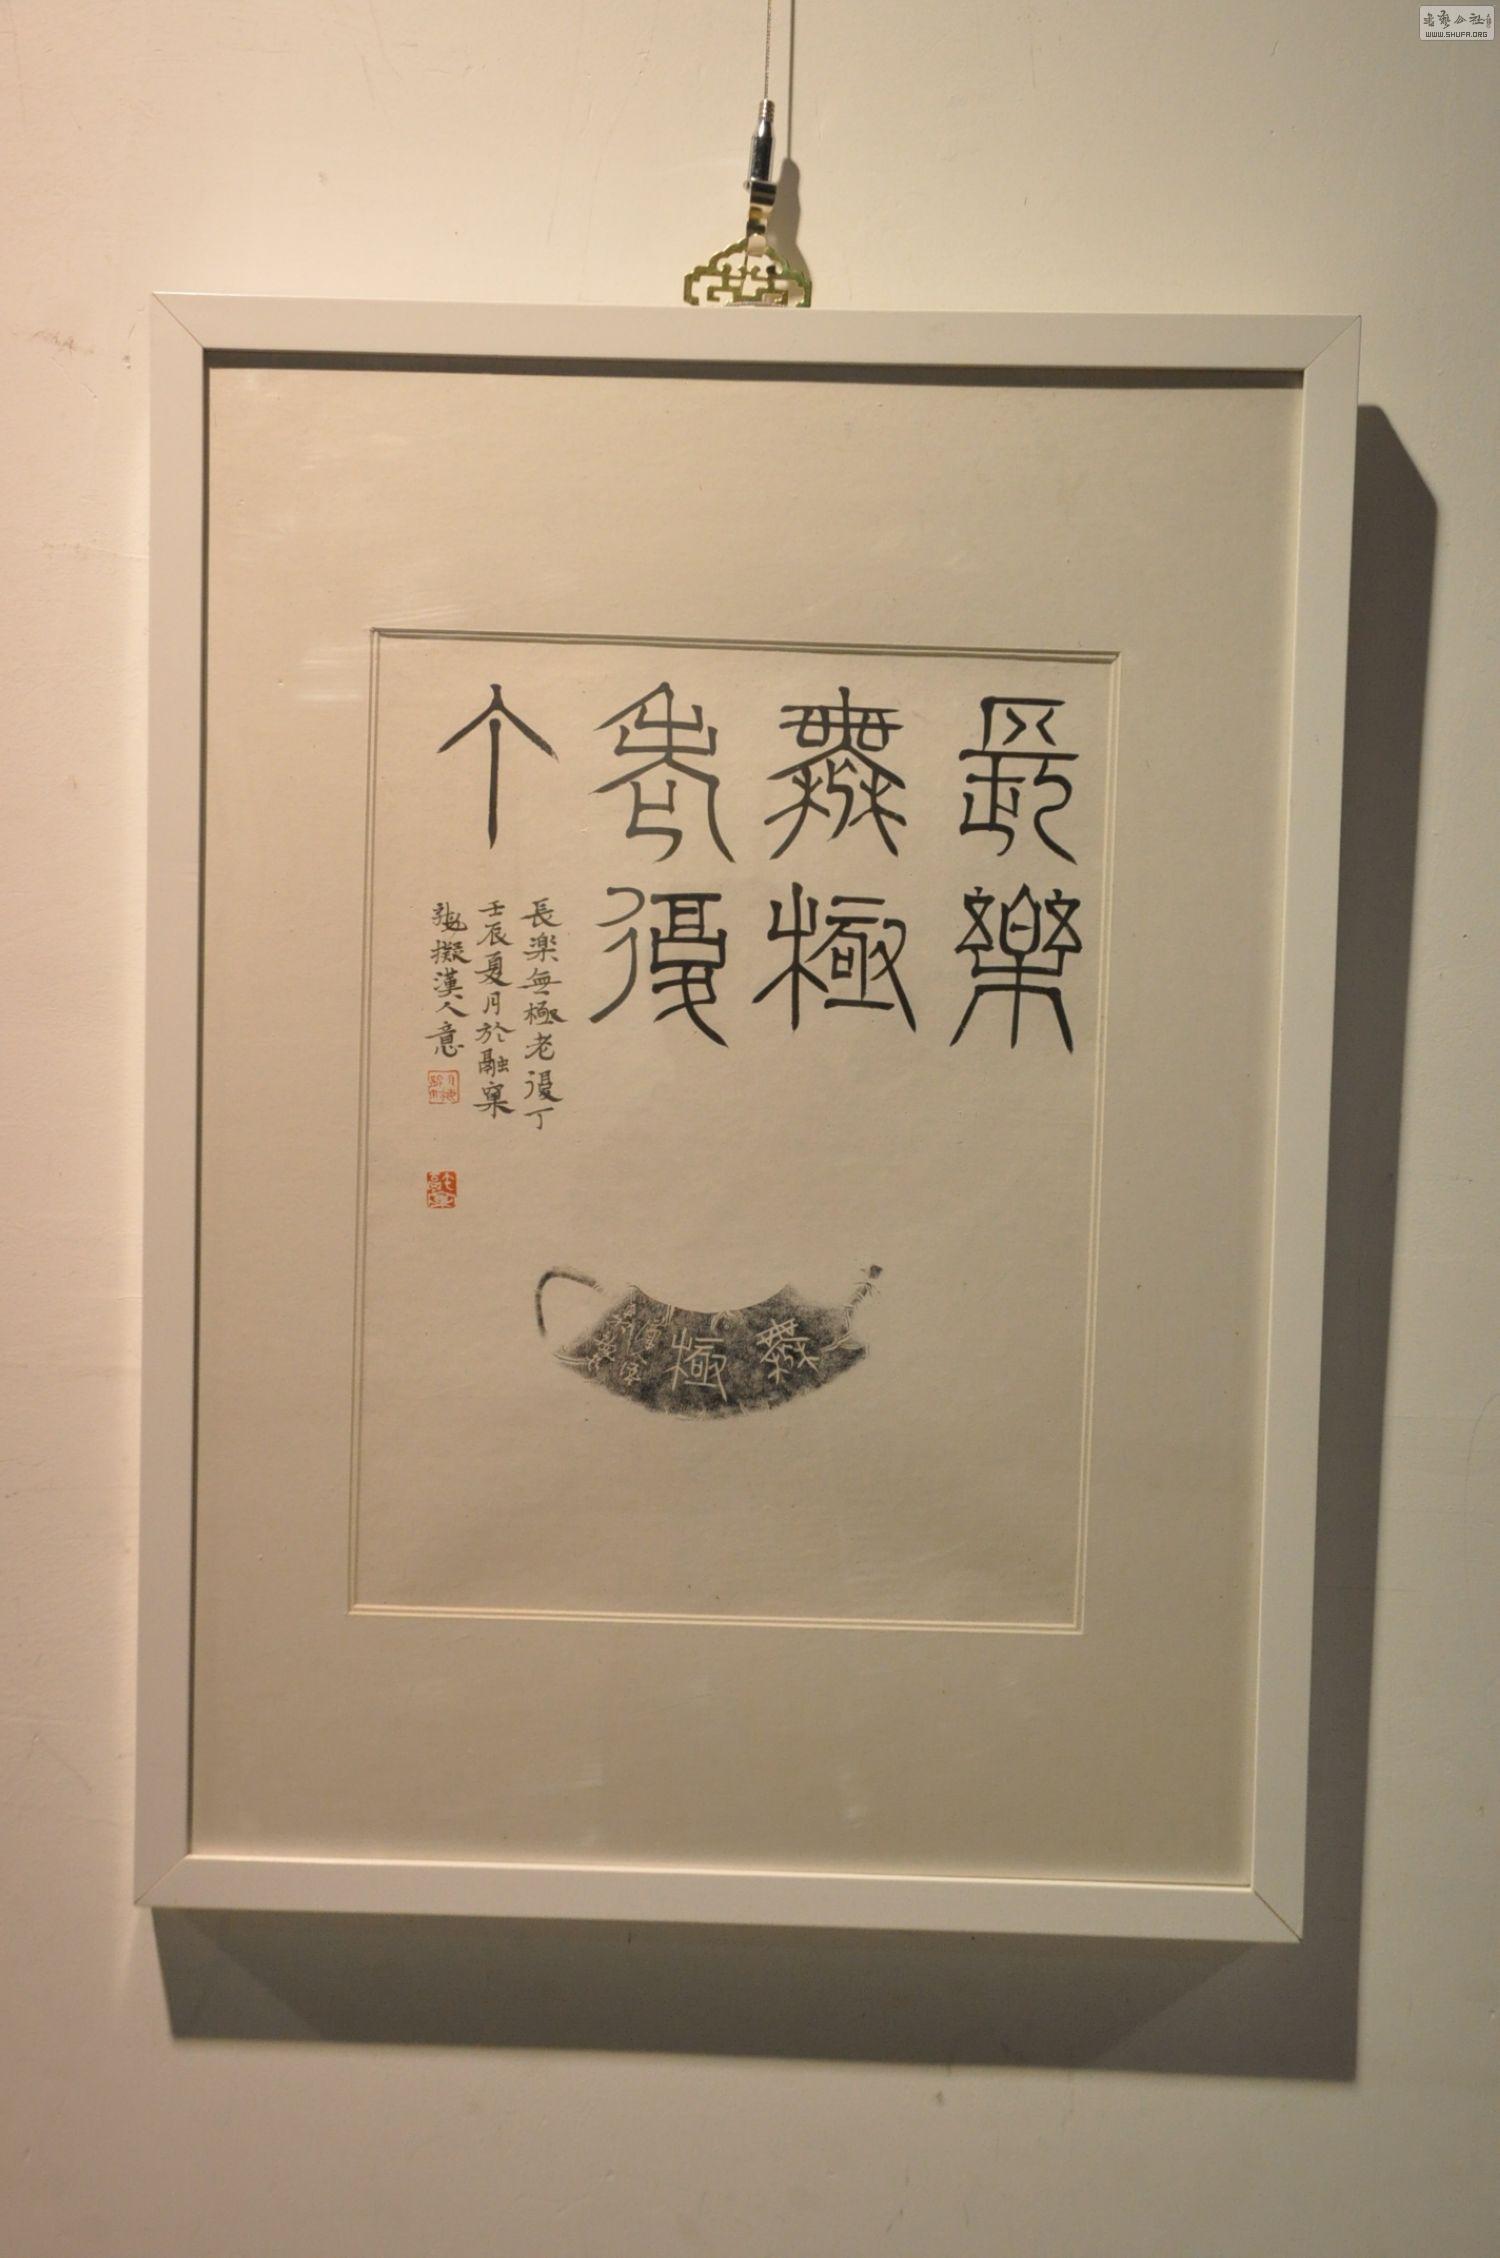 長樂
無極
老復
丁
長楽無極老復丁
壬辰夏月於融窠
擬漢人意
無極
書艺公社
WWW.SHUFA.ORG